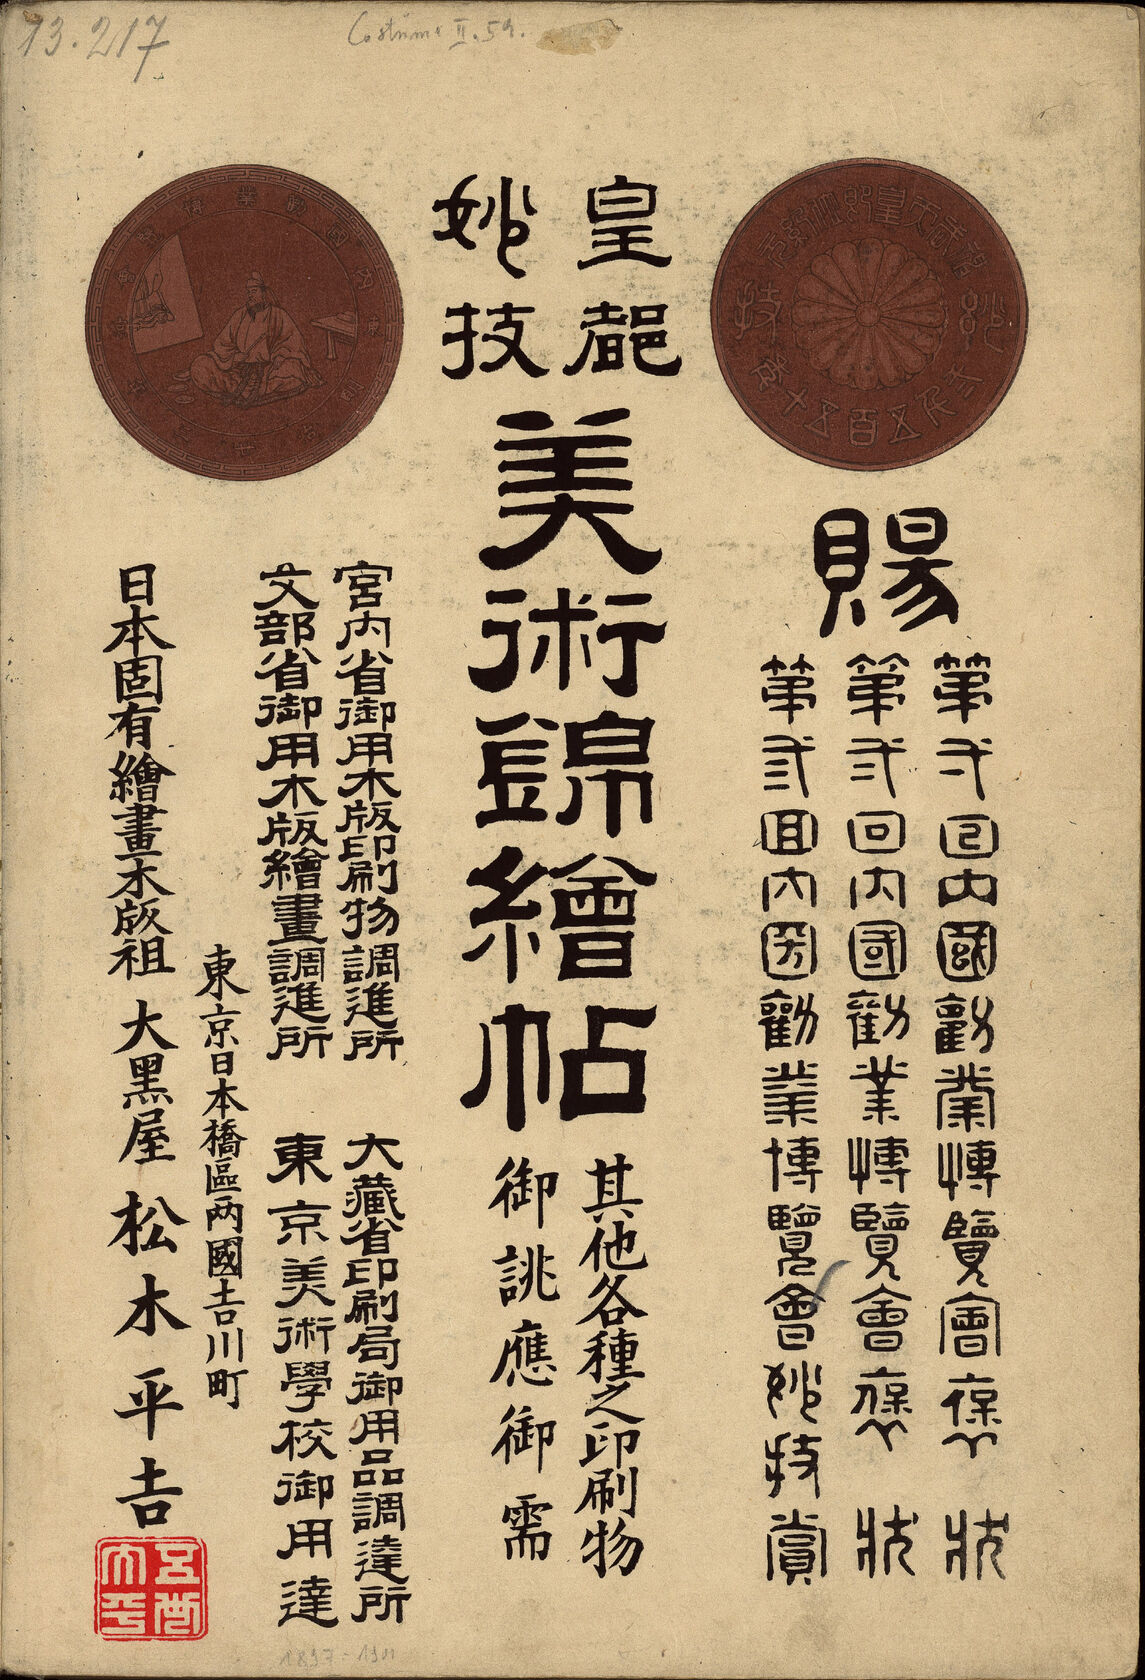 13.217
Costüme II.59.
賜
第弌回内國勸業博覽會褒状
第弍回内國勸業博覽會褒状
第弎回内國勸業博覽會妙技賞
皇都
妙技
美術錦繪帖
其他各種之印刷物
御誂應御需
宮内省御用木版印刷物調進所
大藏省印刷局御用品調達所
文部省御用木版繪畫調進所
東京美術學校御用達
東京日本橋區両國吉川町
日本固有繪畫木版祖 大黑屋 松木平吉